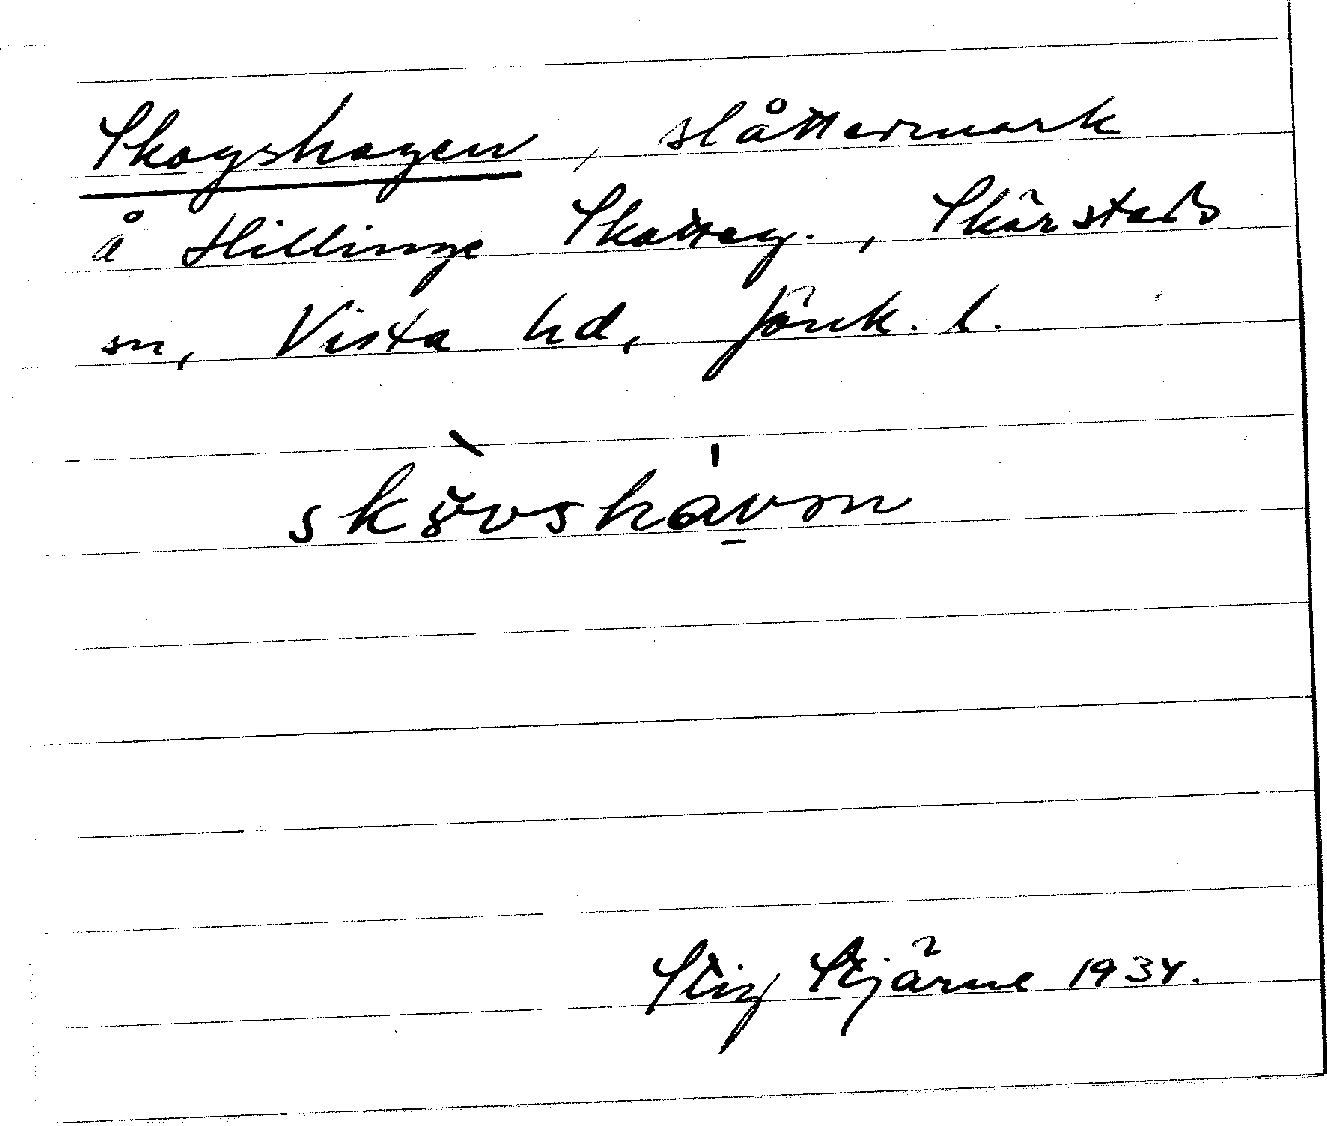 Skogshagen, slåttermark
å Hillinge Skatteg., Skärstads
sn, Vista hd, Jönk. l.
Stig Stjärne 1934.